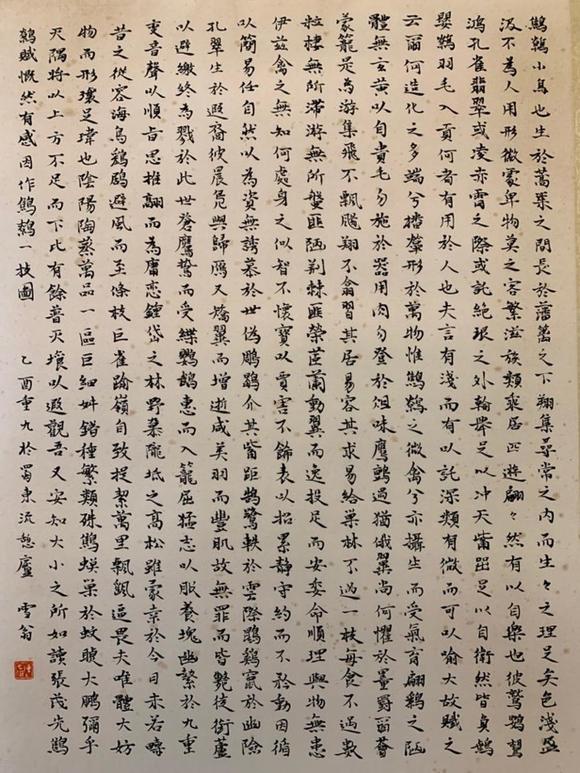 鷦鷯小鳥也生於蒿萊之間長於藩籬之下翔集尋常之內而生々之理足矣色淺體
陋不為人用形微處卑物莫之害繁滋族類乘居匹遊翩々然有以自樂也彼鷲鶚鵾
鴻孔雀翡翠或凌赤霄之際或託絕垠之外翰舉足以沖天觜距足以自衛然皆負矰
嬰繳羽毛入貢何者有用於人也夫言有淺而有以託深類有微而可以喻大故賦之
云爾何造化之多端兮播羣形於萬物惟鷦鷯之微禽兮亦攝生而受氣育翩翾之陋
體無玄黃以自貴毛勿施於器用肉勿登於俎味鷹鸇過猶俄翼尚何懼於罿罻翳薈
蒙蘢是為游集飛不飄颺翔不翕習其居易容其求易給巢林不過一枝每食不過數
粒棲無所滯游無所盤匪陋荊棘匪榮茝蘭動翼而逸投足而安委命順理與物無患
伊茲禽之無知何處身之似智不懷寶以賈害不飾表以招累靜守約而不矜動因循
以簡易任自然以為資無誘慕於世偽鵰鶡介其觜距鵠鷺軼於雲際鵾雞竄於幽險
孔翠生於遐裔彼晨鳧與歸鴈又矯翼而增逝咸美羽而豐肌故無罪而皆斃徒銜蘆
以避繳終為戮於此世蒼鷹鷙而受緤鸚鵡惠而入籠屈猛志以服養塊幽縶於九重
變音聲以順旨思摧翮而為庸戀鍾岱之林野慕隴坻之高松雖蒙幸於今日未若疇
昔之從容海鳥鶢鶋避風而至條枝巨雀踰嶺自致提挈萬里飄颻逼畏夫唯體大妨
物而形瓌足瑋也陰陽陶蒸萬品一區巨細舛錯種繁類殊鷦螟巢於蚊睫大鵬彌乎
天隅將以上方不足而下比有餘普天壤以遐觀吾又安知大小之所如讀張茂先鷦
鷯賦慨然有感因作鷦鷯一枝圖 乙酉重九於蜀東流憩廬 雪翁